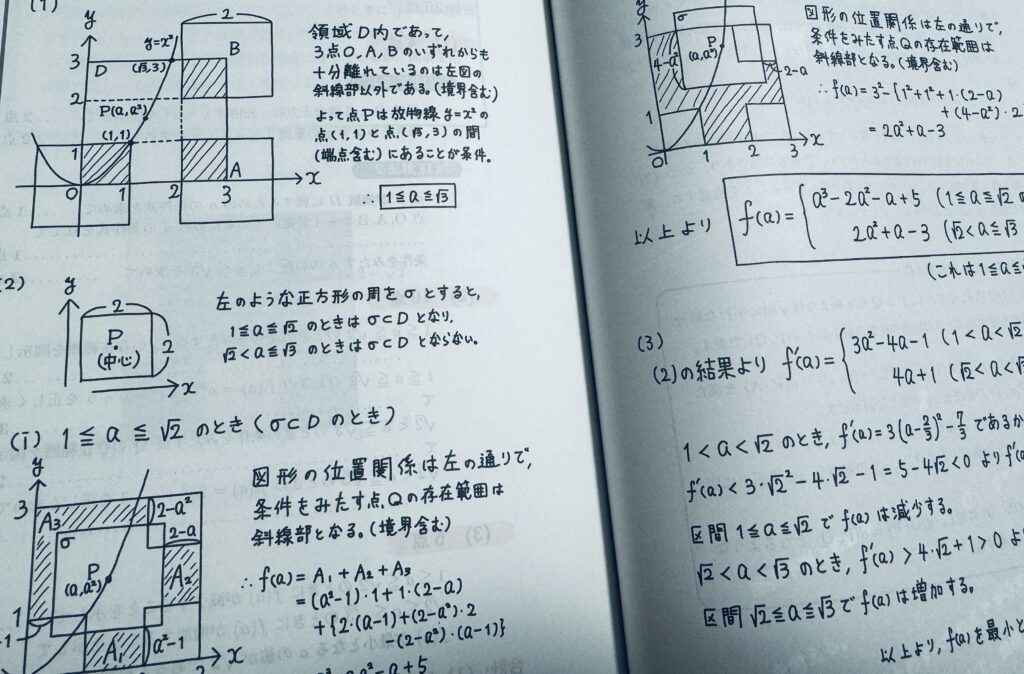 (1)
y
2
y=x²
B
3
D
(√3,3)
2
P(a,a²)
(1,1)
1
A
0
1
2
3
x
領域D内であって,
3点O,A,Bのいずれからも
十分離れているのは左図の
斜線部以外である。(境界含む)
よって点Pは放物線 y=x²の
点(1,1)と点(√3,3)の間
(端点含む)にあることが条件。
∴ 1≦a≦√3
(2)
y
2
P
(中心)
2
x
左のような正方形の周をσとすると,
1≦a≦√2 のときは σ⊂D となり,
√2<a≦√3 のときは σ⊂D とならない。
(i) 1≦a≦√2 のとき(σ⊂D のとき)
y
3
A₃
2-a²
σ
2-a
P
(a,a²)
A₂
1
A₁
a²-1
x
図形の位置関係は左の通りで,
条件をみたす点Qの存在範囲は
斜線部となる。(境界含む)
∴ f(a)=A₁+A₂+A₃
=(a²-1)・1+1・(2-a)
+{2・(a-1)+(2-a²)・2
-(2-a²)・(a-1)}
-a+5
y
σ
3
P
4-a²
(a,a²)
2-a
1
0
1
2
3
x
図形の位置関係は左の通りで,
条件をみたす点Qの存在範囲は
斜線部となる。(境界含む)
∴ f(a)=3²-{1²+1²+1・(2-a)
+(4-a²)・2
=2a²+a-3
以上より f(a)={ a³-2a²-a+5 (1≦a≦√2
2a²+a-3 (√2<a≦√3
(これは1≦a≦
(3)
(2)の結果より f'(a)={ 3a²-4a-1 (1<a<√2
4a+1 (√2<a<√3
1<a<√2 のとき, f'(a)=3(a-2/3)²-7/3 であるか
f'(a)<3・√2²-4・√2-1=5-4√2<0 より f'(a
区間 1≦a≦√2 で f(a) は減少する。
√2<a<√3 のとき, f'(a)>4・√2+1>0 よ
区間 √2≦a≦√3 で f(a) は増加する。
以上より, f(a)を最小と